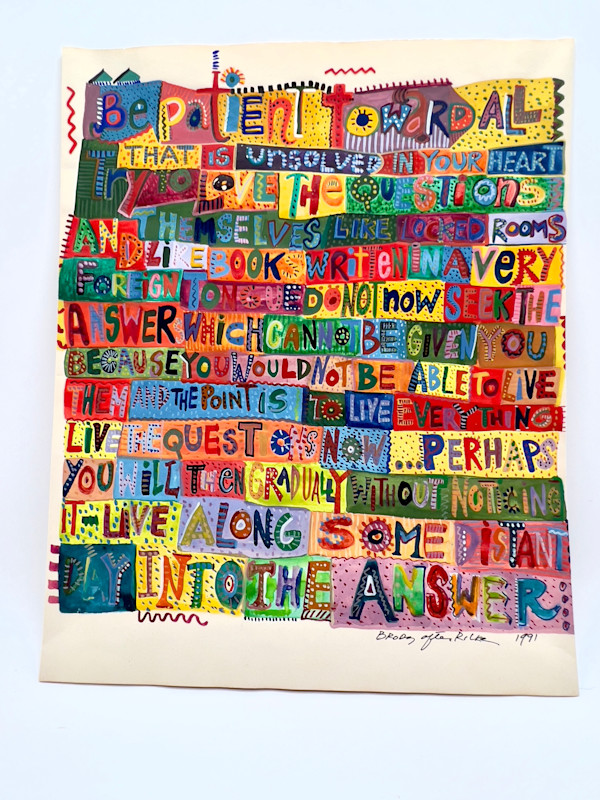 Be patient toward ALL
THAT IS UNSOLVED IN YOUR HEART
Try to LOVE THE QUESTIONS
THEMSELVES LIKE LOCKED ROOMS
AND LIKE BOOKS WRITTEN IN A VERY
FOREIGN TONGUE DO NOT NOW SEEK THE
ANSWER WHICH CANNOT BE GIVEN YOU
BECAUSE YOU WOULD NOT BE ABLE TO LIVE
THEM AND THE POINT IS TO LIVE EVERYTHING
LIVE THE QUESTIONS NOW ...PERHAPS
YOU WILL THEN GRADUALLY WITHOUT NOTICING
IT - LIVE ALONG SOME DISTANT
DAY INTO THE ANSWER
BRODY after RILKE 1991